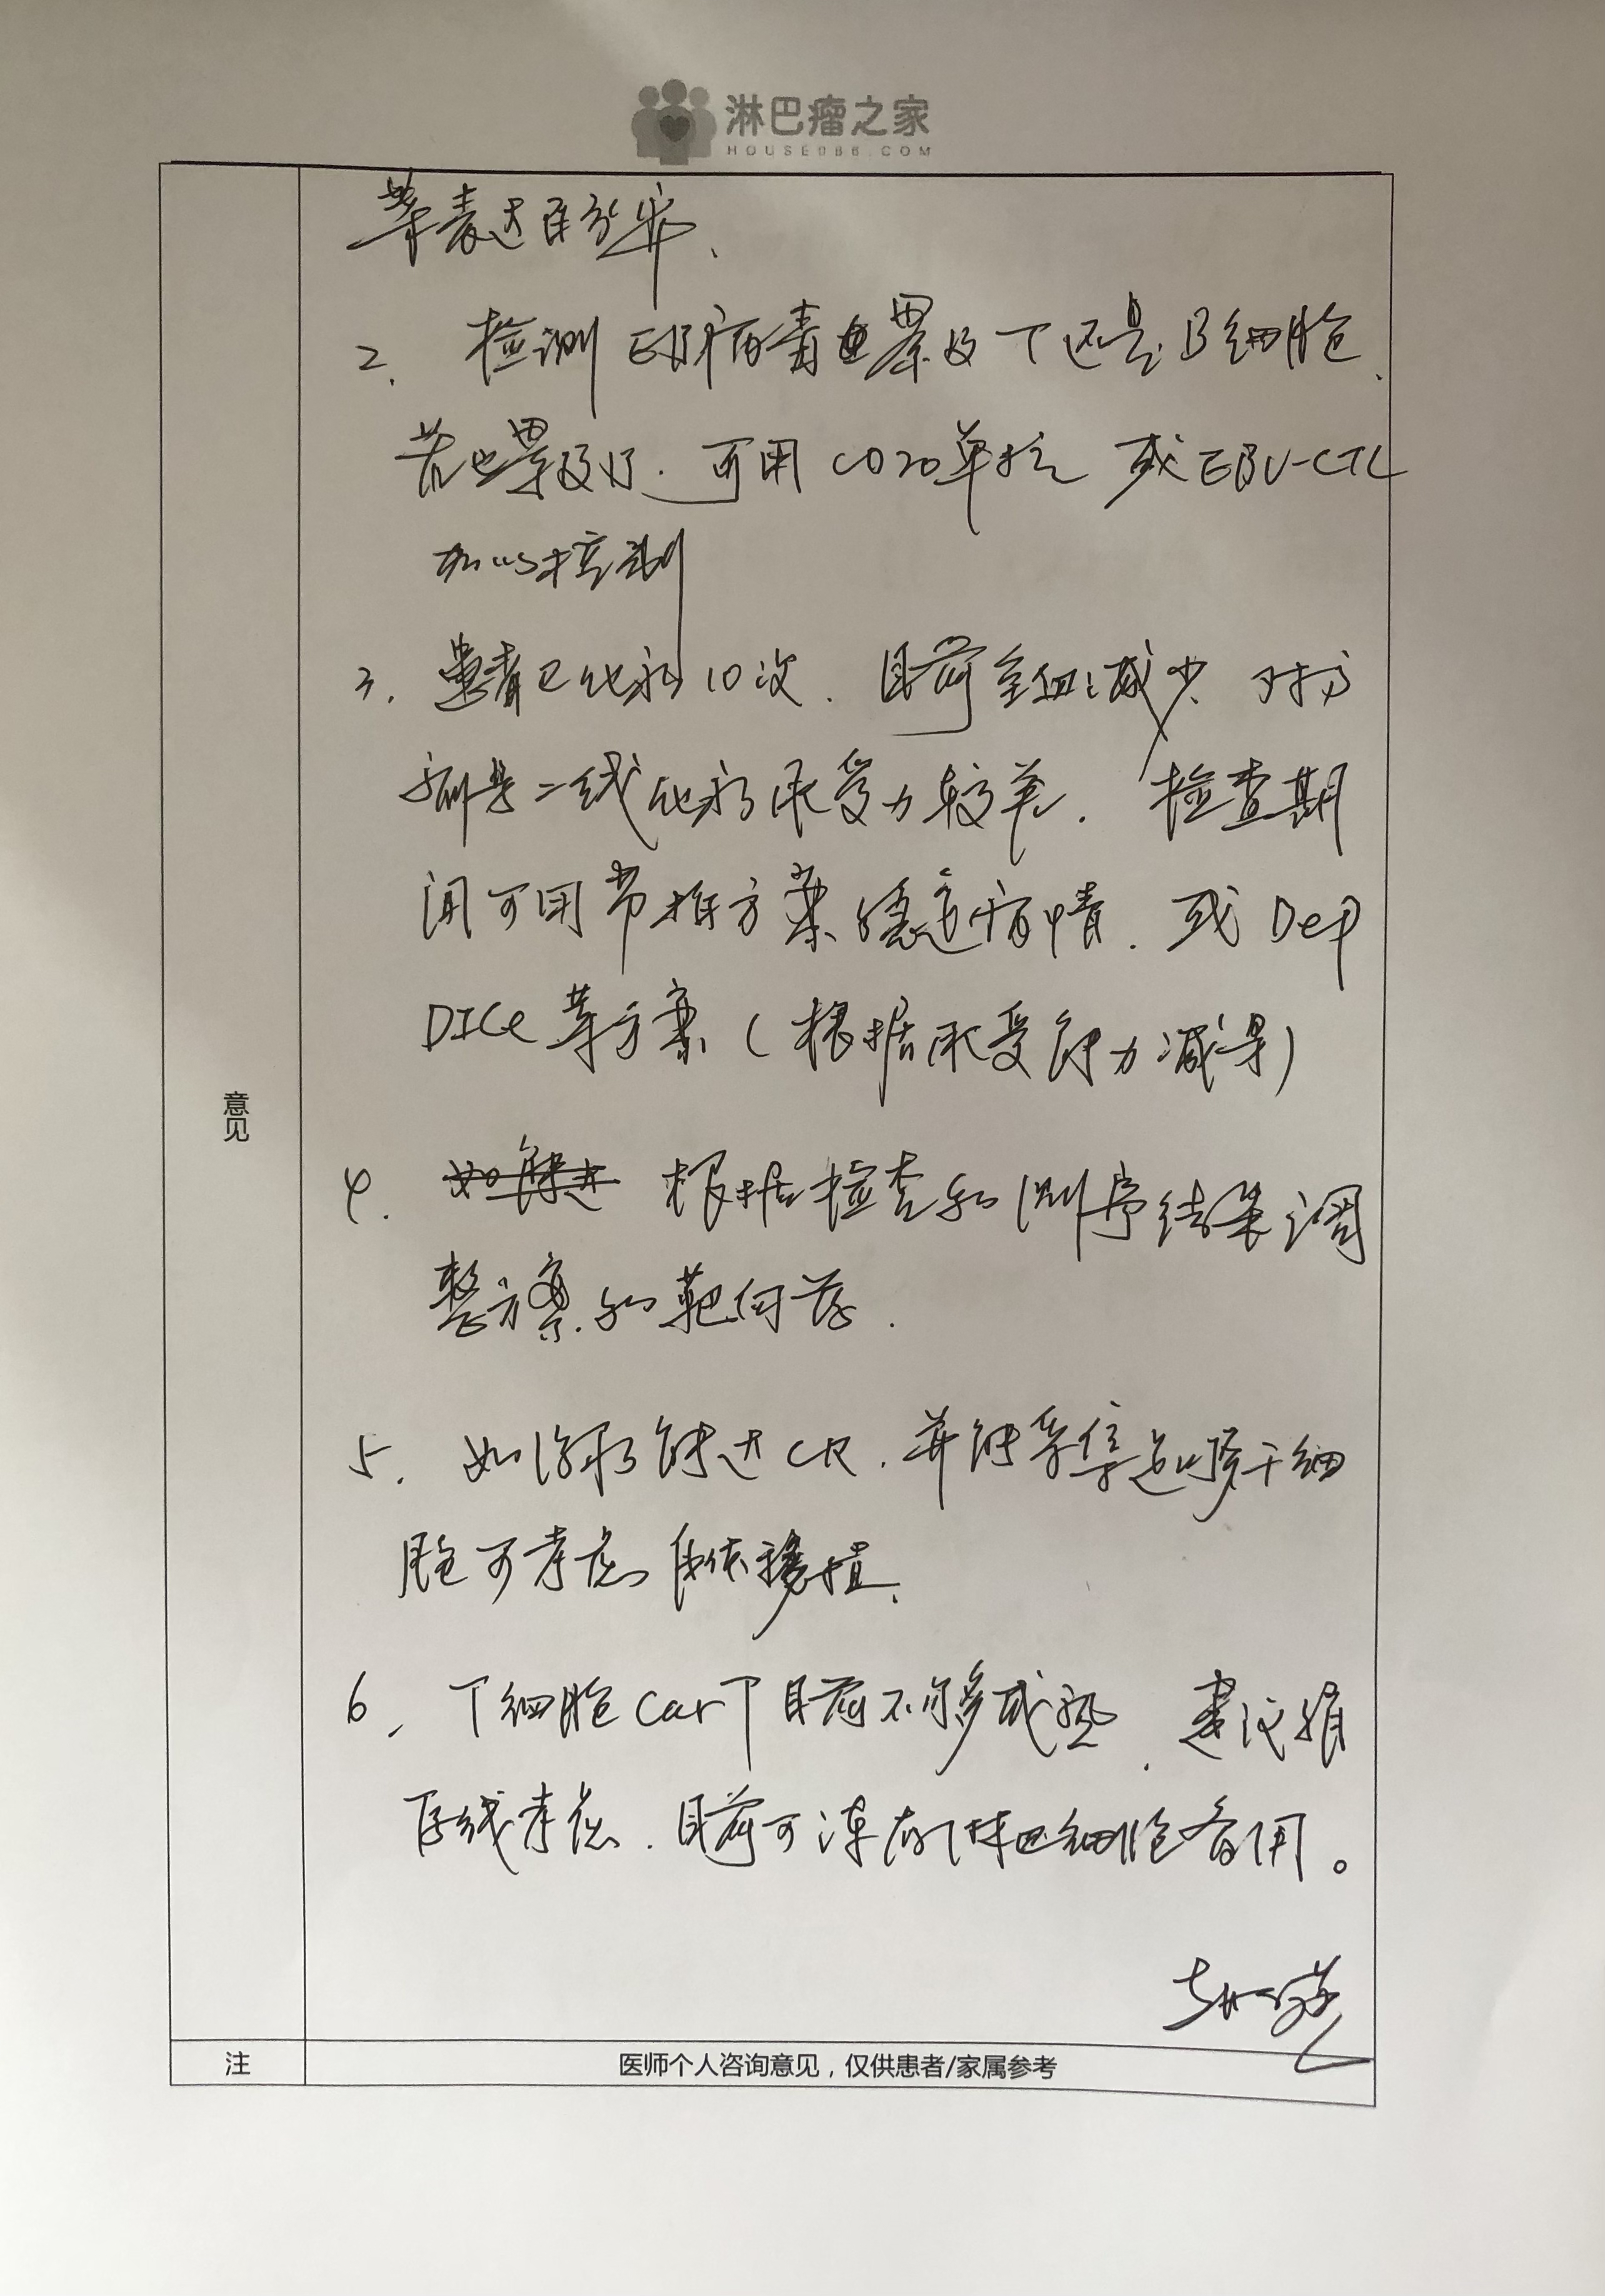 淋巴瘤之家
HOUSE086.COM
等表达百分率、
2. 检测EB病毒累及T还是B细胞.
若也累及B.可用CD20单抗 或EBV-CTL
加以控制
3. 患者已化疗10次. 目前全血减少.对于
二线化疗承受力较差. 检查期
间可用 方案稳定病情. 或DEP
DICE等方案(根据承受能力减量)
4. 根据检查和测序结果调
整方案.和靶向药.
5. 如治疗能达CR.并能采集足够干细
胞可考虑自体移植.
6、T细胞CarT目前不够成熟. 建议
后线考虑.目前可冻存淋巴细胞备用。
意见
注
医师个人咨询意见,仅供患者/家属参考